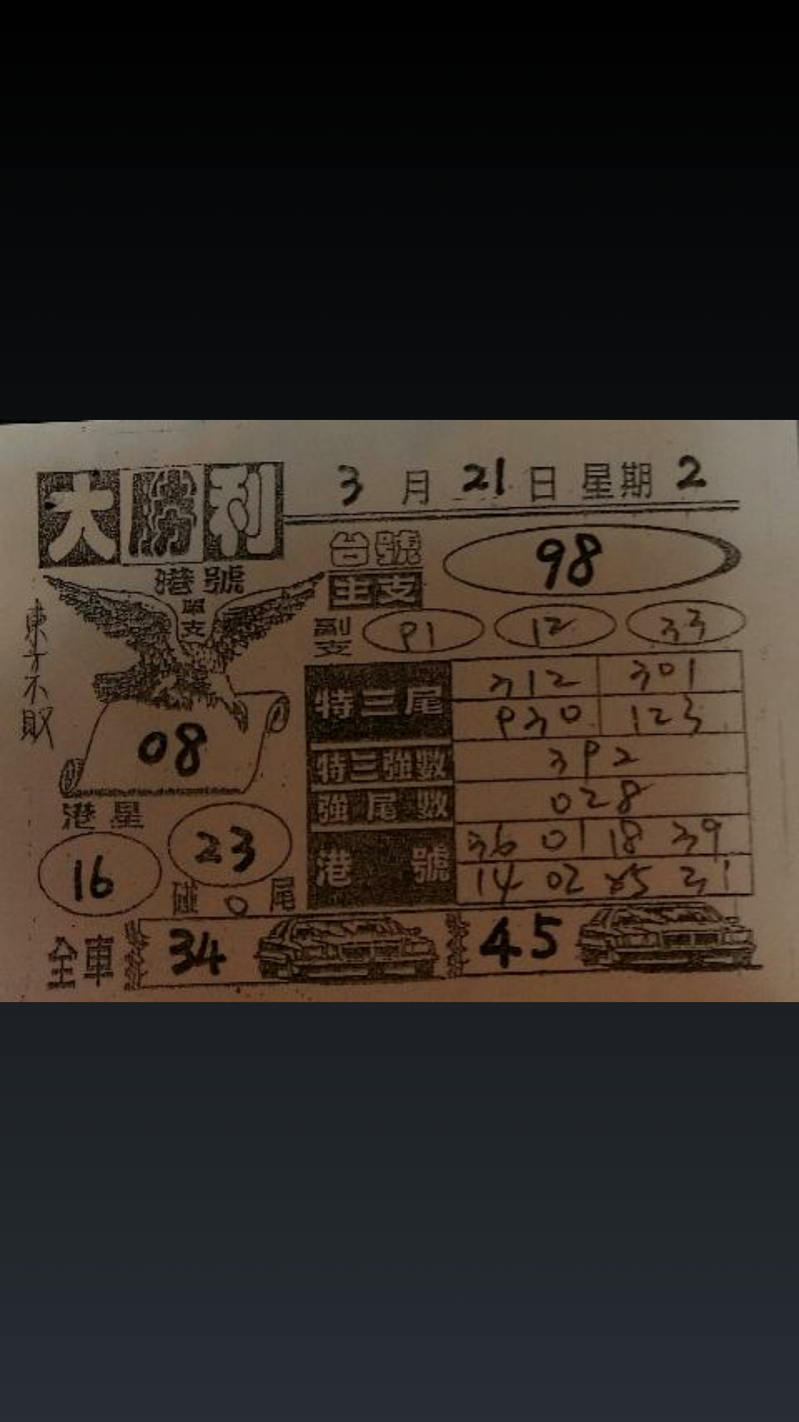 大勝利
3月21日 星期2
港號
單支
東方不敗
08
台號
主支
98
副支
91 12 33
特三尾
312 301
930 123
特三強數
392
強尾數
028
港號
36 01 18 39
14 02 25 21
港星
16 23
碰0尾
全車
34 45